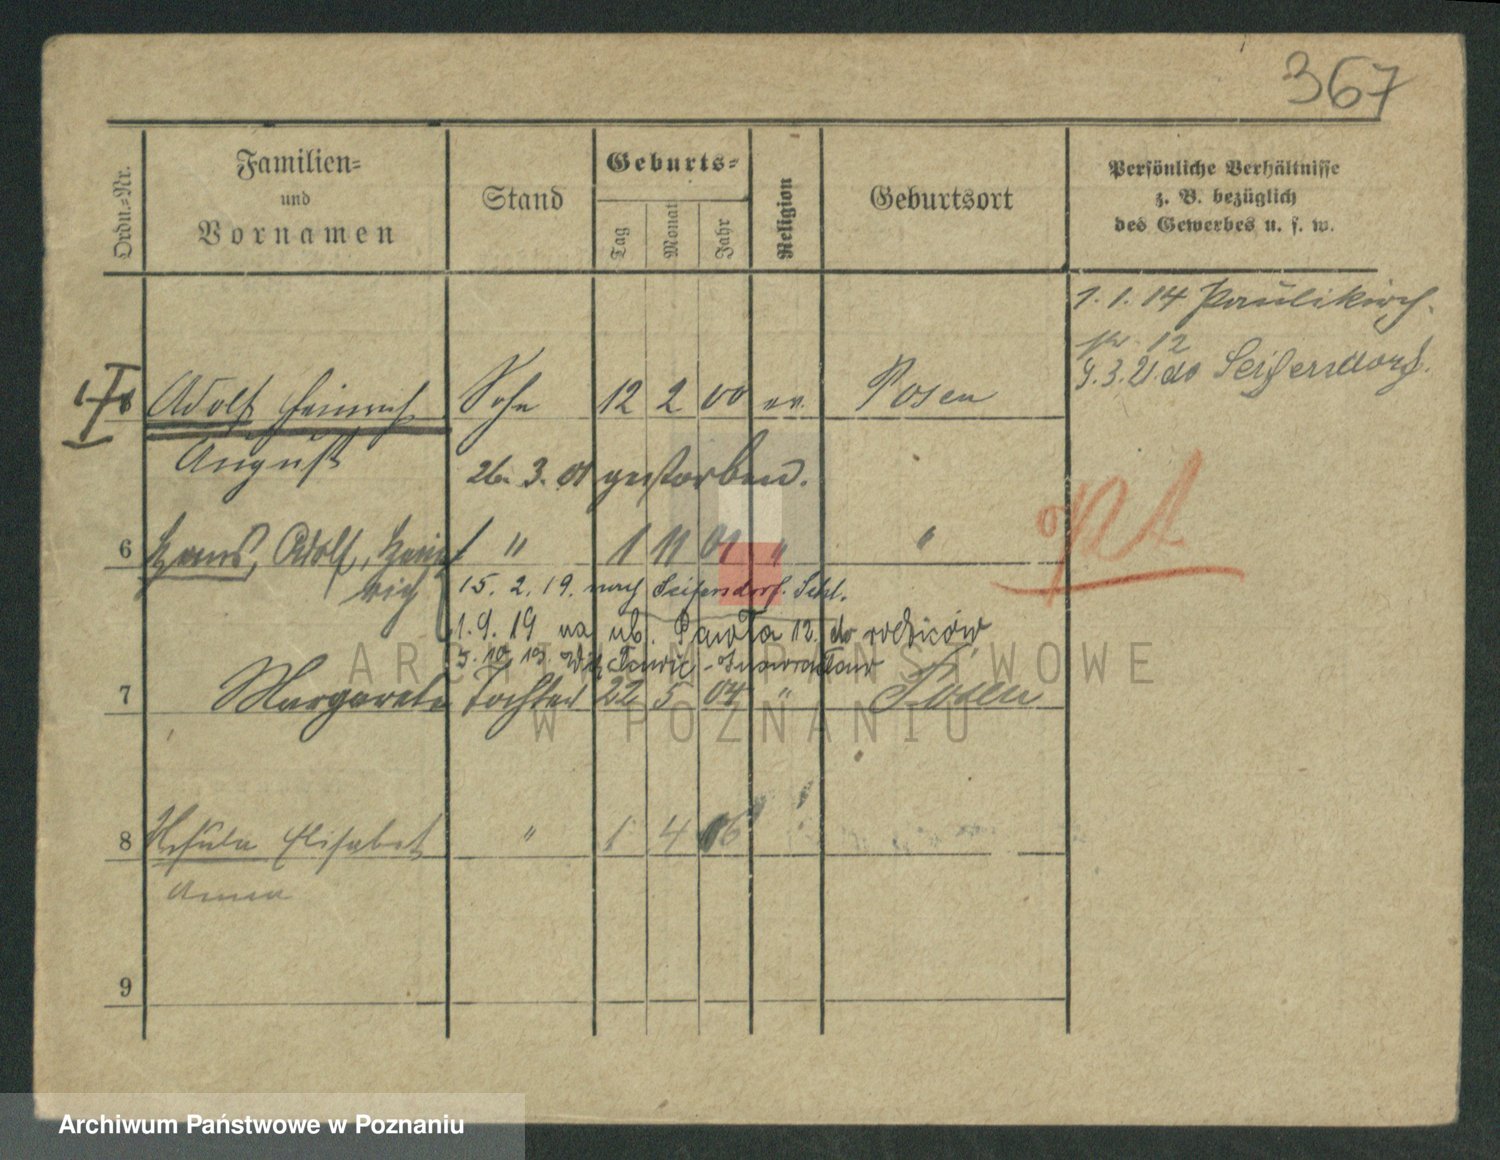 367
Ordn.-Nr.
Familien-
und
Vornamen
Stand
Geburts-
Tag
Monat
Jahr
Religion
Geburtsort
Persönliche Verhältnisse
z. B. bezüglich
des Gewerbes u. s. w.
1. 1. 14 Paulikirch-
str. 12
9. 3. 21. do Seifersdorf.
Adolf Heinrich Sohn 12 2 00 ev. Posen
August 26. 3. 01 gestorben.
6 Hans, Adolf, Hein- " 1 11 01 " "
rich 15. 2. 19. nach Seifersdorf. Schl.
opt
1. 9. 19 na ub. Pawła 12. do rodziców
5. 10. 19.
7 Margarete Tochter 22 5 04 " Posen
8 Ursula Elisabet " 1 4 16
Anna
9
ARCHIWUM PAŃSTWOWE
W POZNANIU
Archiwum Państwowe w Poznaniu